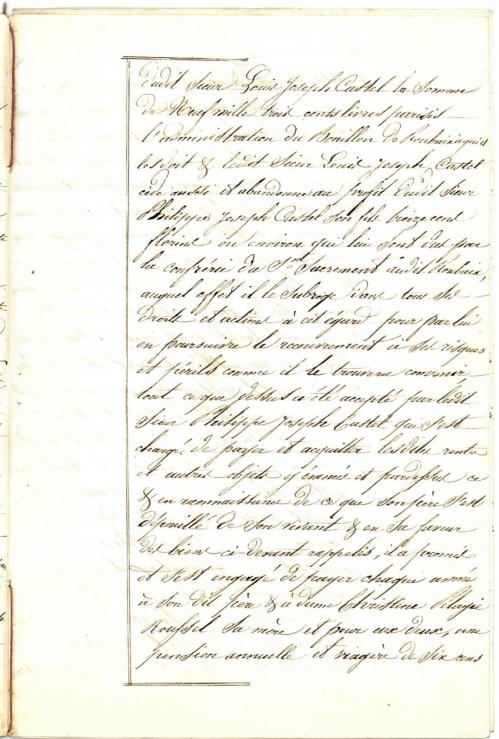 dudit Sieur Louis Joseph Castel la Somme
de Neuf mille trois cents livres parisis
l'administration du Bouillon de Roubaix
les doit & ledit Sieur Louis Joseph Castel
cède aussi et abandonne au profit dudit Sieur
Philippe Joseph Castel son fils treize cent
florins ou environ qui lui sont dus par
la confrérie du St Sacrement audit Roubaix,
auquel effet il le subroge dans tous ses
droits et actions à cet égard pour par lui
en poursuivre le recouvrement à ses risques
et périls comme il le trouvera convenir,
tout ce que dessus a été accepté par ledit
Sieur Philippe Joseph Castel qui s'est
chargé de payer et acquitter lesdites rentes
et autres objets y énoncés et pardessus ce
& en reconnaissance de ce que son père s'est
dépouillé de son vivant & en sa faveur
des biens ci devant rappelés, il a promis
et s'est engagé de payer chaque année
à son dit père & à dame Christine Pélagie
Roussel sa mère et pour eux deux, une
pension annuelle et viagère de Six cens